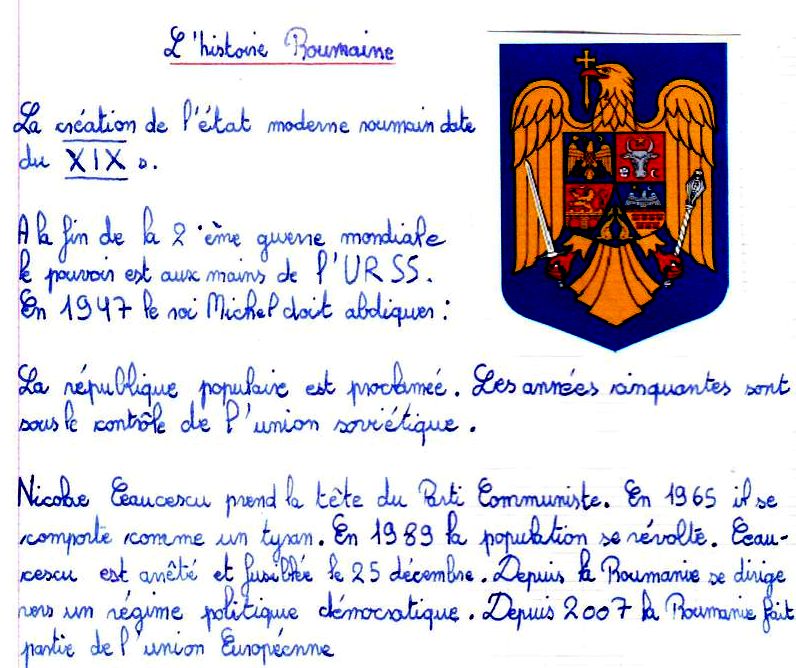 L'histoire Roumaine
La création de l'état moderne roumain date
du XIX s.
A la fin de la 2 ème guerre mondiale
le pouvoir est aux mains de l'URSS.
En 1947 le roi Michel doit abdiquer :
La république populaire est proclamée. Les années cinquantes sont
sous le contrôle de l'union soviétique.
Nicolae Ceaucescu prend la tête du Parti Communiste. En 1965 il se
comporte comme un tyran. En 1989 la population se révolte. Ceau-
cescu est arrêté et fusillée le 25 décembre. Depuis la Roumanie se dirige
vers un régime politique démocratique. Depuis 2007 la Roumanie fait
partie de l'union Européenne